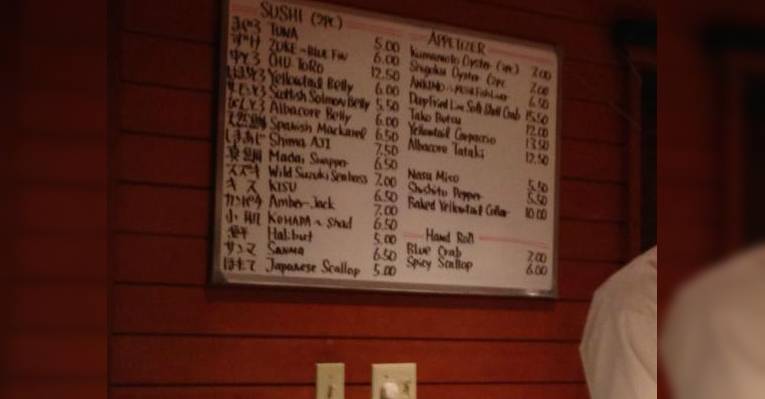 SUSHI (2pc)
まぐろ TUNA 5.00
ZUKE-Blue Fin 6.00
中とろ CHU TORO 12.50
Yellowtail Belly 6.00
Scottish Salmon Belly 5.50
Albacore Belly 6.00
Spanish Mackarel 6.50
しまあじ Shima AJI 7.50
真鯛 Madai Snapper 6.50
スズキ Wild Suzuki Seabass 7.00
キス KISU 6.50
カンパチ Amber-Jack 7.00
小肌 KOHADA-Shad 6.50
Halibut 5.00
サンマ Sanma 6.50
ほたて Japanese Scallop 5.00
APPETIZER
Kumamoto Oyster
Shigoku Oyster (2pc
ANKIMO 6.50
Deep Fried Live Soft Shell Crab 15.50
Tako Butsu 12.00
Yellowtail Carpaccio 13.50
Albacore Tataki 12.50
Nasu Miso 5.50
Shishito Pepper 5.50
Baked Yellowtail Collar 10.00
Hand Roll
Blue Crab 7.00
Spicy Scallop 6.00